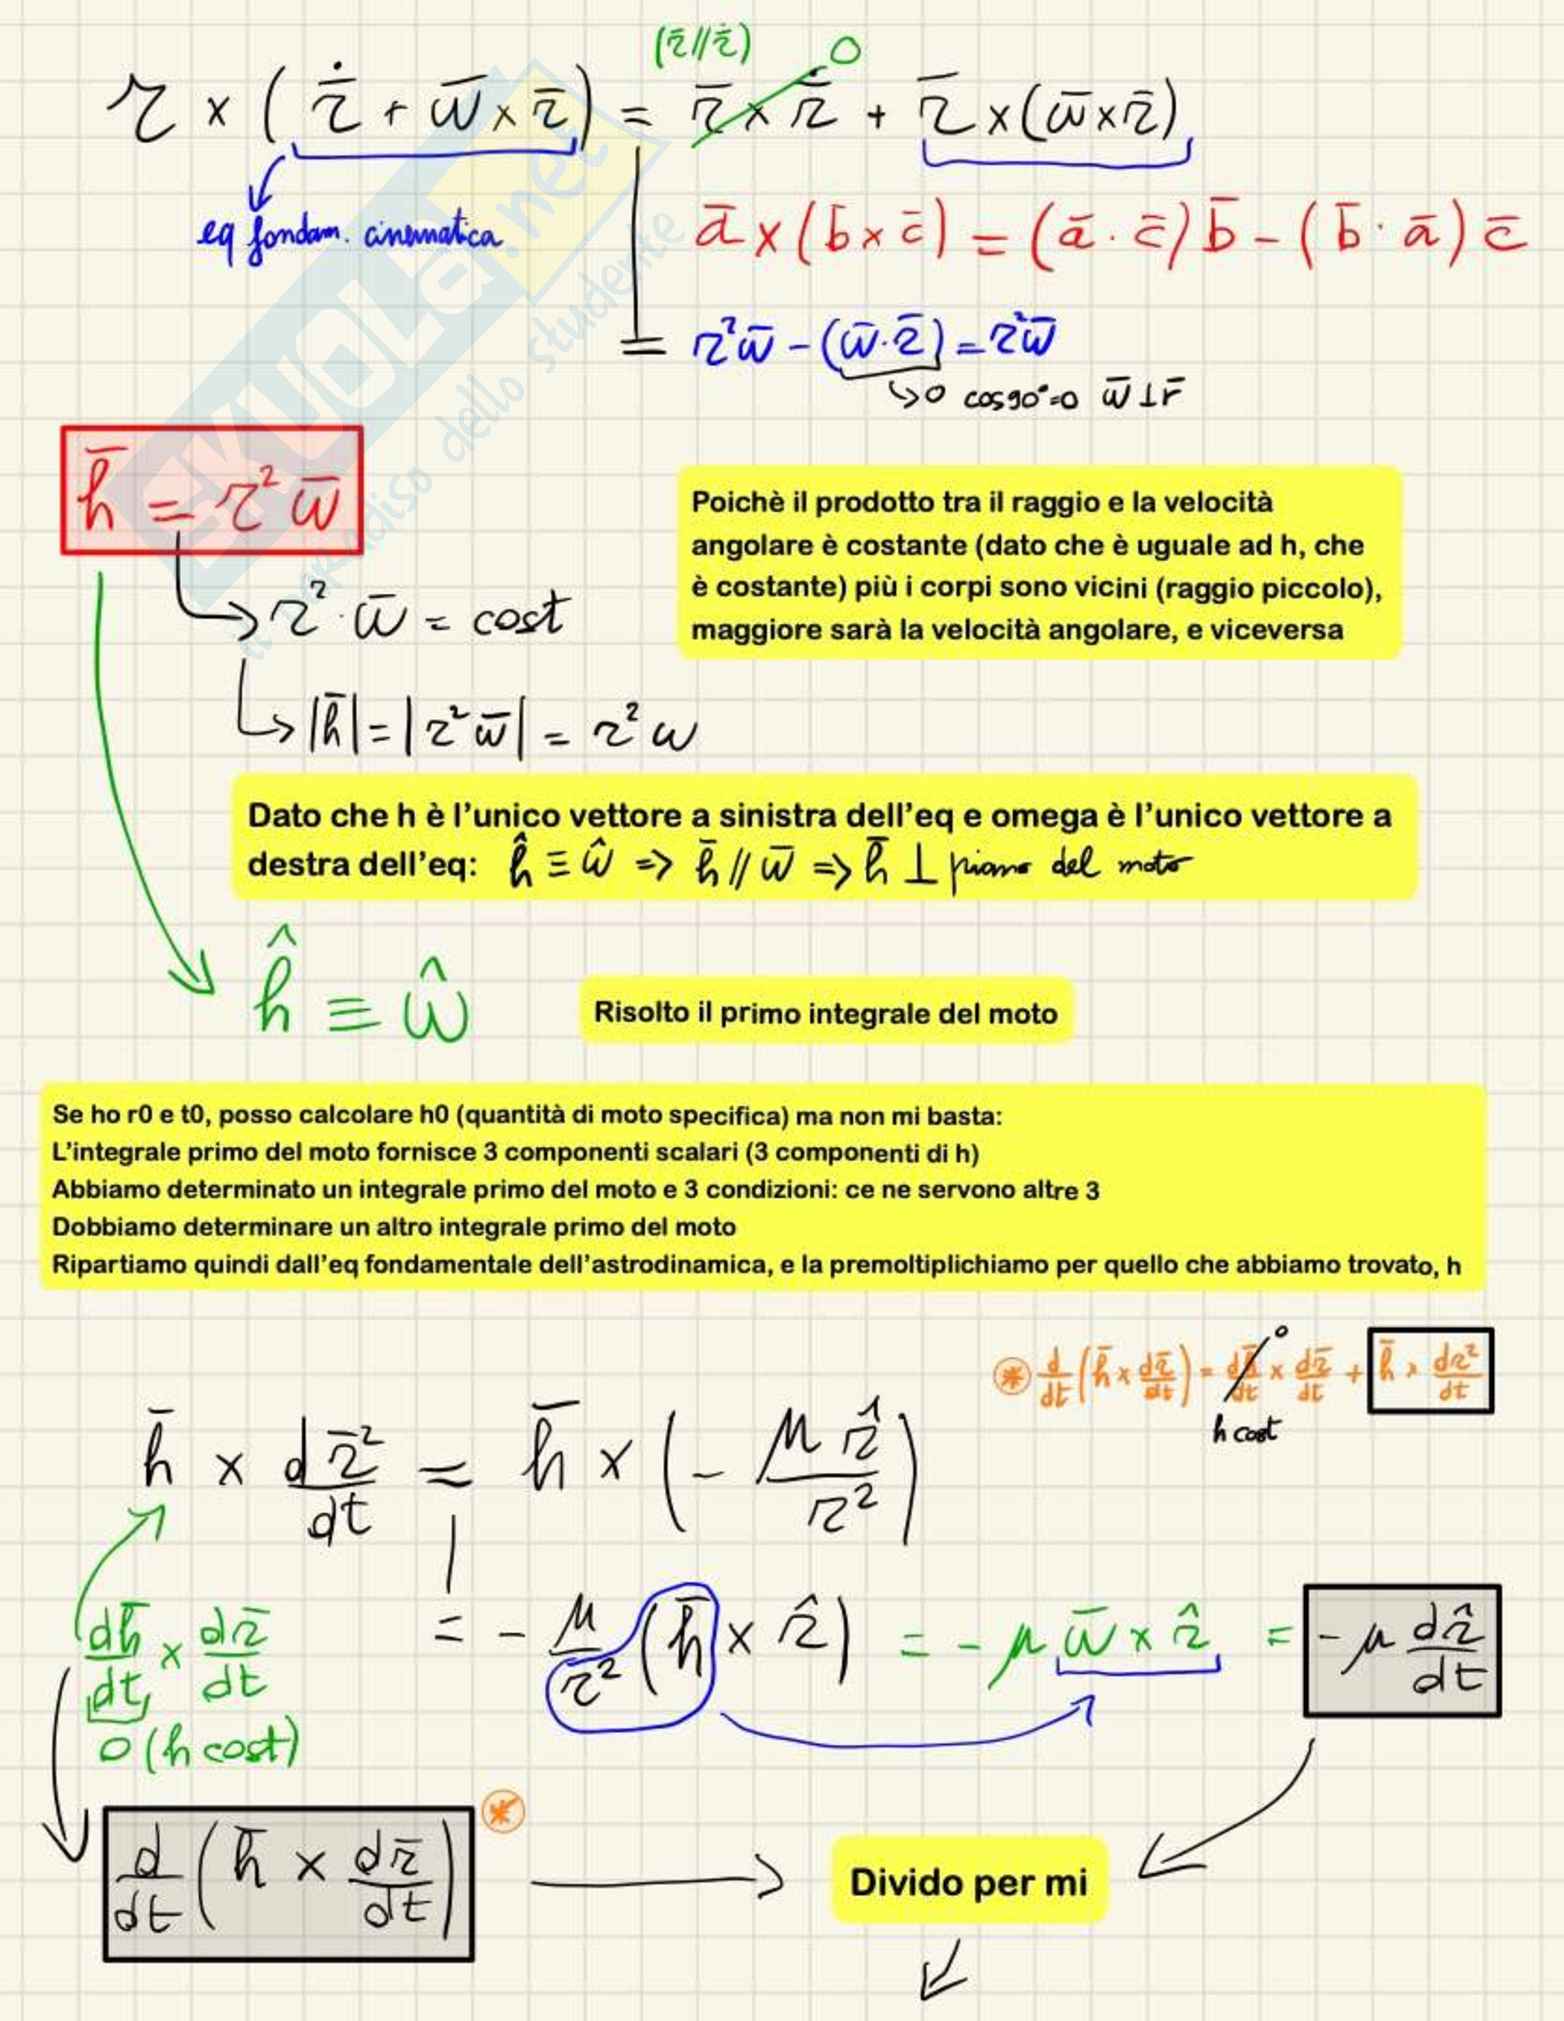 (r̄ // ṙ̄) 0
r × ( ṙ̄ + ω̄ × r̄ ) = r̄ × ṙ̄ + r̄ × (ω̄ × r̄)
eq fondam. cinematica
ā × (b̄ × c̄) = (ā · c̄) b̄ - (b̄ · ā) c̄
= r²ω̄ - (ω̄·r̄) = r²ω̄
↳ 0 cos90°=0 ω̄ ⊥ r̄
h̄ = r² ω̄
Poichè il prodotto tra il raggio e la velocità
angolare è costante (dato che è uguale ad h, che
è costante) più i corpi sono vicini (raggio piccolo),
maggiore sarà la velocità angolare, e viceversa
↳ r² · ω̄ = cost
↳ |h̄| = |r² ω̄| = r² ω
Dato che h è l'unico vettore a sinistra dell'eq e omega è l'unico vettore a
destra dell'eq: ĥ ≡ ω̂ => h̄ // ω̄ => h̄ ⊥ piano del moto
ĥ ≡ ω̂
Risolto il primo integrale del moto
Se ho r0 e t0, posso calcolare h0 (quantità di moto specifica) ma non mi basta:
L'integrale primo del moto fornisce 3 componenti scalari (3 componenti di h)
Abbiamo determinato un integrale primo del moto e 3 condizioni: ce ne servono altre 3
Dobbiamo determinare un altro integrale primo del moto
Ripartiamo quindi dall'eq fondamentale dell'astrodinamica, e la premoltiplichiamo per quello che abbiamo trovato, h
⊛ d/dt (h̄ × dr̄/dt) = dh̄/dt × dr̄/dt + h̄ × dr²/dt
0
h cost
h̄ × dr̄²/dt = h̄ × (- μ r̂ / r²)
dh̄/dt × dr̄/dt
= - μ/r² (h̄ × r̂) = - μ ω̄ × r̂ = - μ dr̂/dt
0 (h cost)
d/dt (h̄ × dr̄/dt) ⊛
Divido per mi
SKUOLA.net
il paradiso dello studente